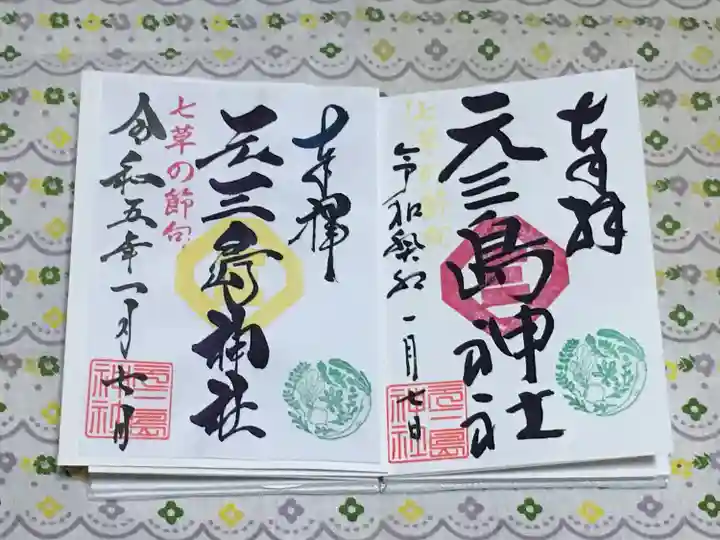 奉拝
元三島神社
七草の節句
令和癸卯一月七日
元三島神社
奉拝
元三島神社
七草の節句
令和五年一月七日
元三島神社